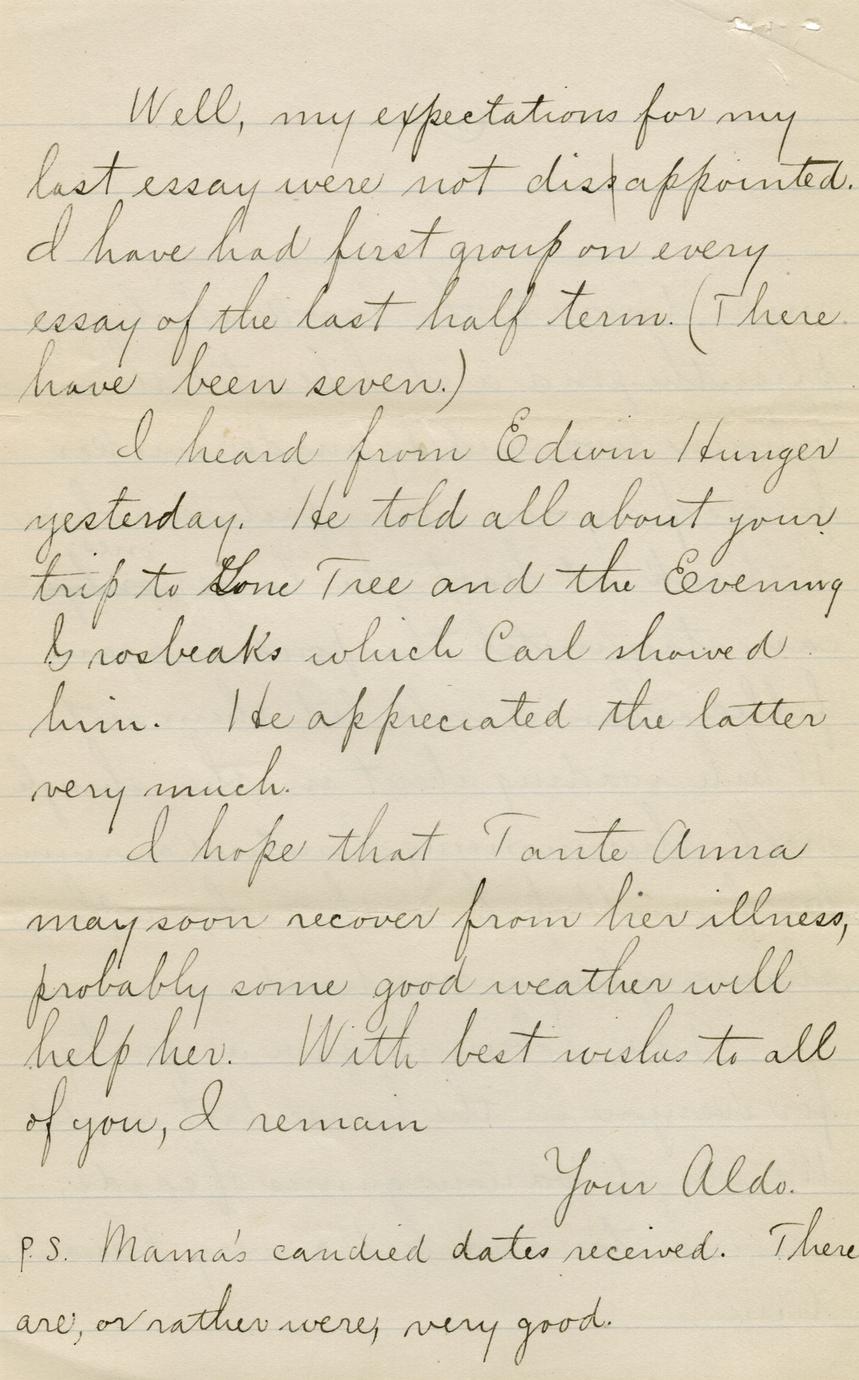 Well, my expectations for my
last essay were not disappointed.
I have had first group on every
essay of the last half term. (There
have been seven.)
I heard from Edwin Hunger
yesterday. He told all about your
trip to Lone Tree and the Evening
Grosbeaks which Carl showed
him. He appreciated the latter
very much.
I hope that Tante Anna
may soon recover from her illness,
probably some good weather will
help her. With best wishes to all
of you, I remain
Your Aldo.
P.S. Mama's candied dates received. There
are, or rather were, very good.